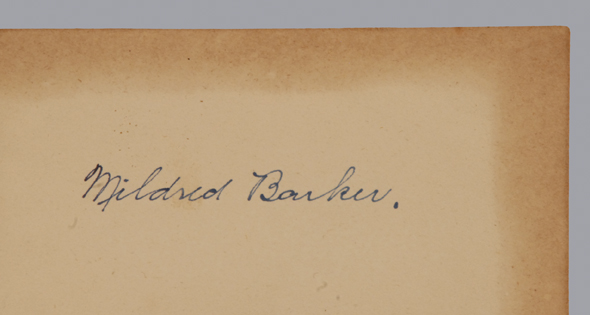 Mildred Barker.